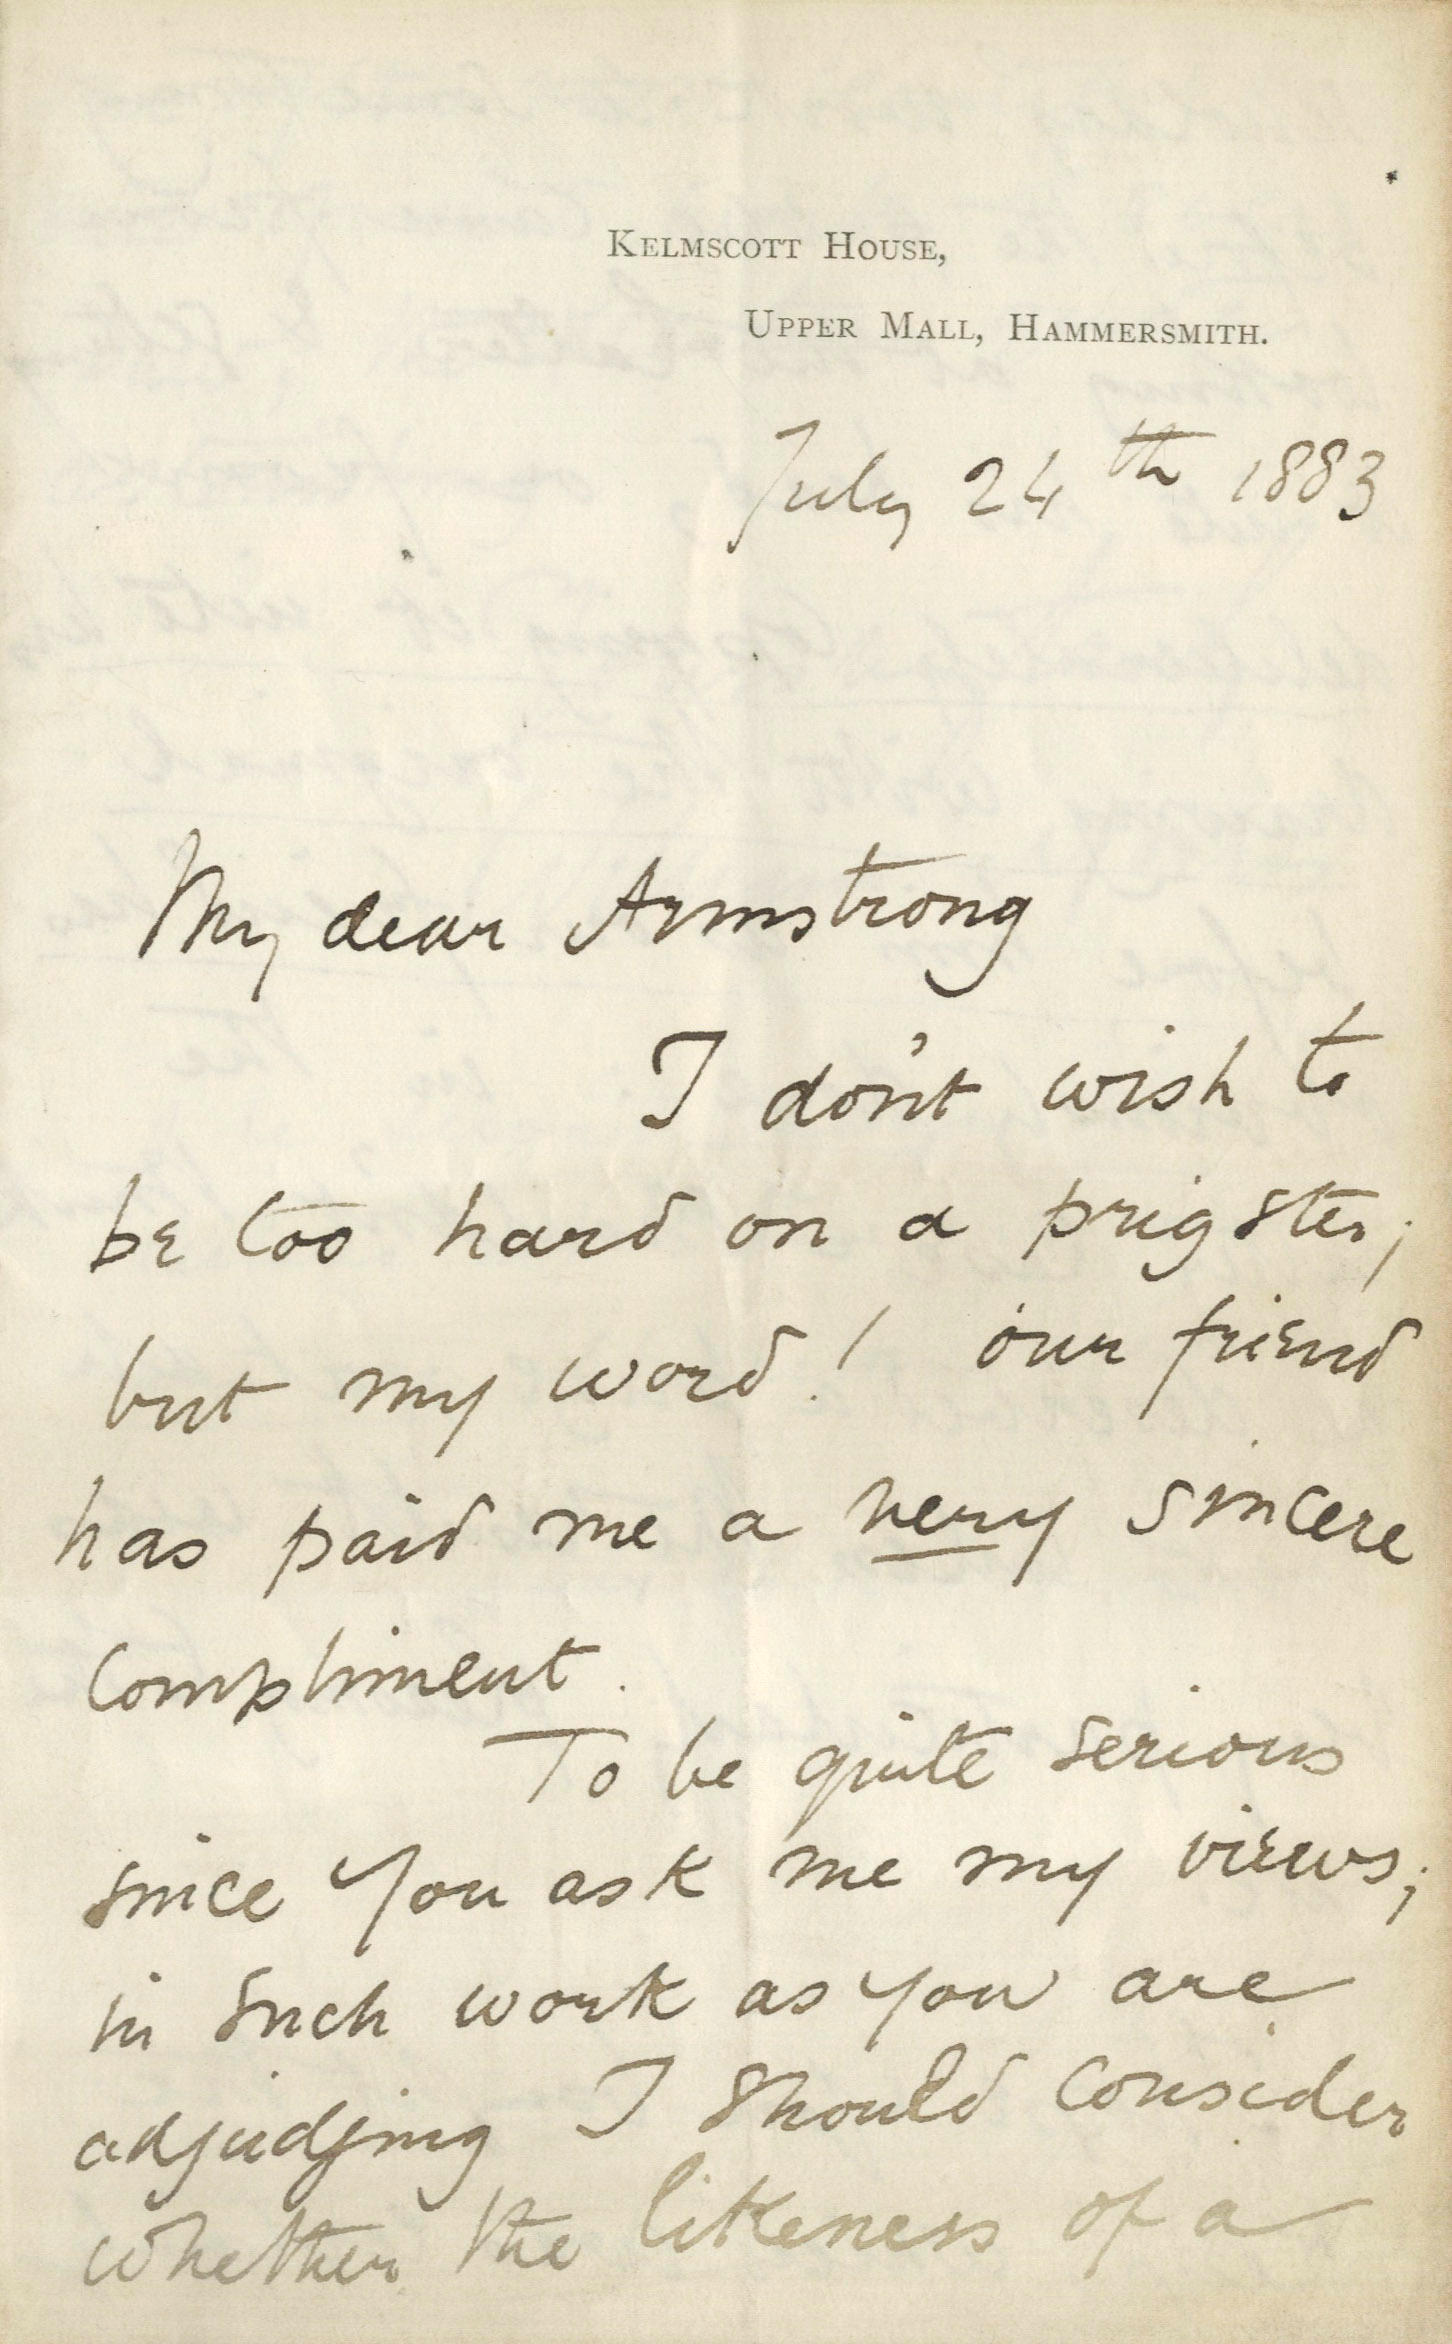 KELMSCOTT HOUSE,
UPPER MALL, HAMMERSMITH.
July 24th 1883
My dear Armstrong
I don't wish to
be too hard on a prigster;
but my word! our friend
has paid me a very sincere
compliment.
To be quite serious
since you ask me my views;
in such work as you are
adjudging I should consider
whether the likeness of a